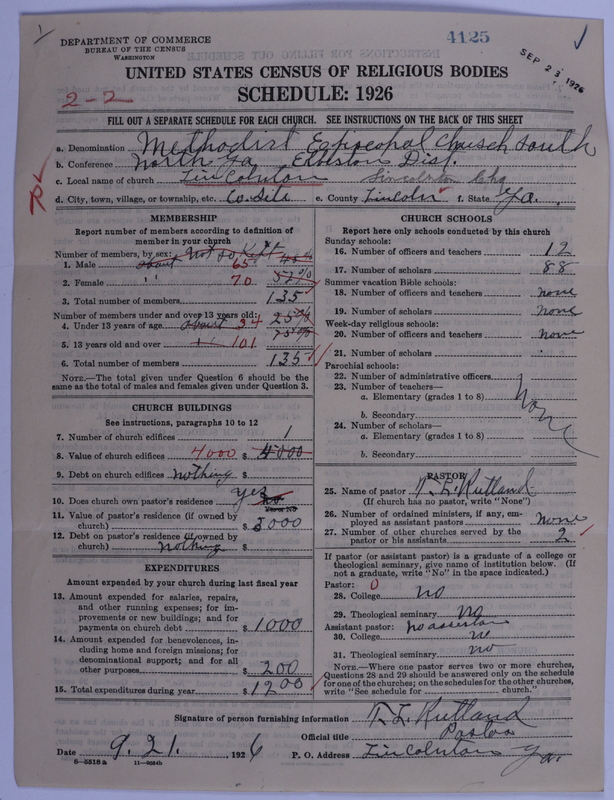 4125
SEP 23 1926
DEPARTMENT OF COMMERCE
BUREAU OF THE CENSUS
WASHINGTON
UNITED STATES CENSUS OF RELIGIOUS BODIES
SCHEDULE: 1926
2-2
FILL OUT A SEPARATE SCHEDULE FOR EACH CHURCH. SEE INSTRUCTIONS ON THE BACK OF THIS SHEET
a. Denomination Methodist Episcopal Church South
b. Conference North Ga Elberton Dist.
c. Local name of church Lincolnton Lincolnton Chg
d. City, town, village, or township, etc. Co. Site e. County Lincoln f. State Ga.
MEMBERSHIP
Report number of members according to definition of
member in your church
Number of members, by sex: Not so Kept
1. Male about 65 45%
2. Female " 70 52%
3. Total number of members 135
Number of members under and over 13 years old:
4. Under 13 years of age about 34 25%
5. 13 years old and over " 101 75%
6. Total number of members 135
NOTE.—The total given under Question 6 should be the
same as the total of males and females given under Question 3.
CHURCH BUILDINGS
See instructions, paragraphs 10 to 12
7. Number of church edifices 1
8. Value of church edifices 4000 $ 4000
9. Debt on church edifices nothing $
10. Does church own pastor's residence yes
11. Value of pastor's residence (if owned by
church) $ 3000
12. Debt on pastor's residence (if owned by
church) nothing $
EXPENDITURES
Amount expended by your church during last fiscal year
13. Amount expended for salaries, repairs,
and other running expenses; for im-
provements or new buildings; and for
payments on church debt $ 1000
14. Amount expended for benevolences, in-
cluding home and foreign missions; for
denominational support; and for all
other purposes $ 200
15. Total expenditures during year $ 1200
CHURCH SCHOOLS
Report here only schools conducted by this church
Sunday schools:
16. Number of officers and teachers 12
17. Number of scholars 88
Summer vacation Bible schools:
18. Number of officers and teachers none
19. Number of scholars none
Week-day religious schools:
20. Number of officers and teachers none
21. Number of scholars
Parochial schools:
22. Number of administrative officers
23. Number of teachers—
a. Elementary (grades 1 to 8) none
b. Secondary
24. Number of scholars—
a. Elementary (grades 1 to 8)
b. Secondary
PASTOR
25. Name of pastor T. L. Rutland
(If church has no pastor, write "None")
26. Number of ordained ministers, if any, em-
ployed as assistant pastors none
27. Number of other churches served by the
pastor or his assistants 2
If pastor (or assistant pastor) is a graduate of a college or
theological seminary, give name of institution below. (If
not a graduate, write "No" in the space indicated.)
Pastor: 0
28. College no
29. Theological seminary no
Assistant pastor: no assistant
30. College no
31. Theological seminary no
NOTE.—Where one pastor serves two or more churches,
Questions 28 and 29 should be answered only on the schedule
for one of the churches; on the schedules for the other churches,
write "See schedule for church."
Signature of person furnishing information T. L. Rutland
Official title Pastor
Date 9. 21. 1926 P. O. Address Lincolnton Ga.
8—5518a